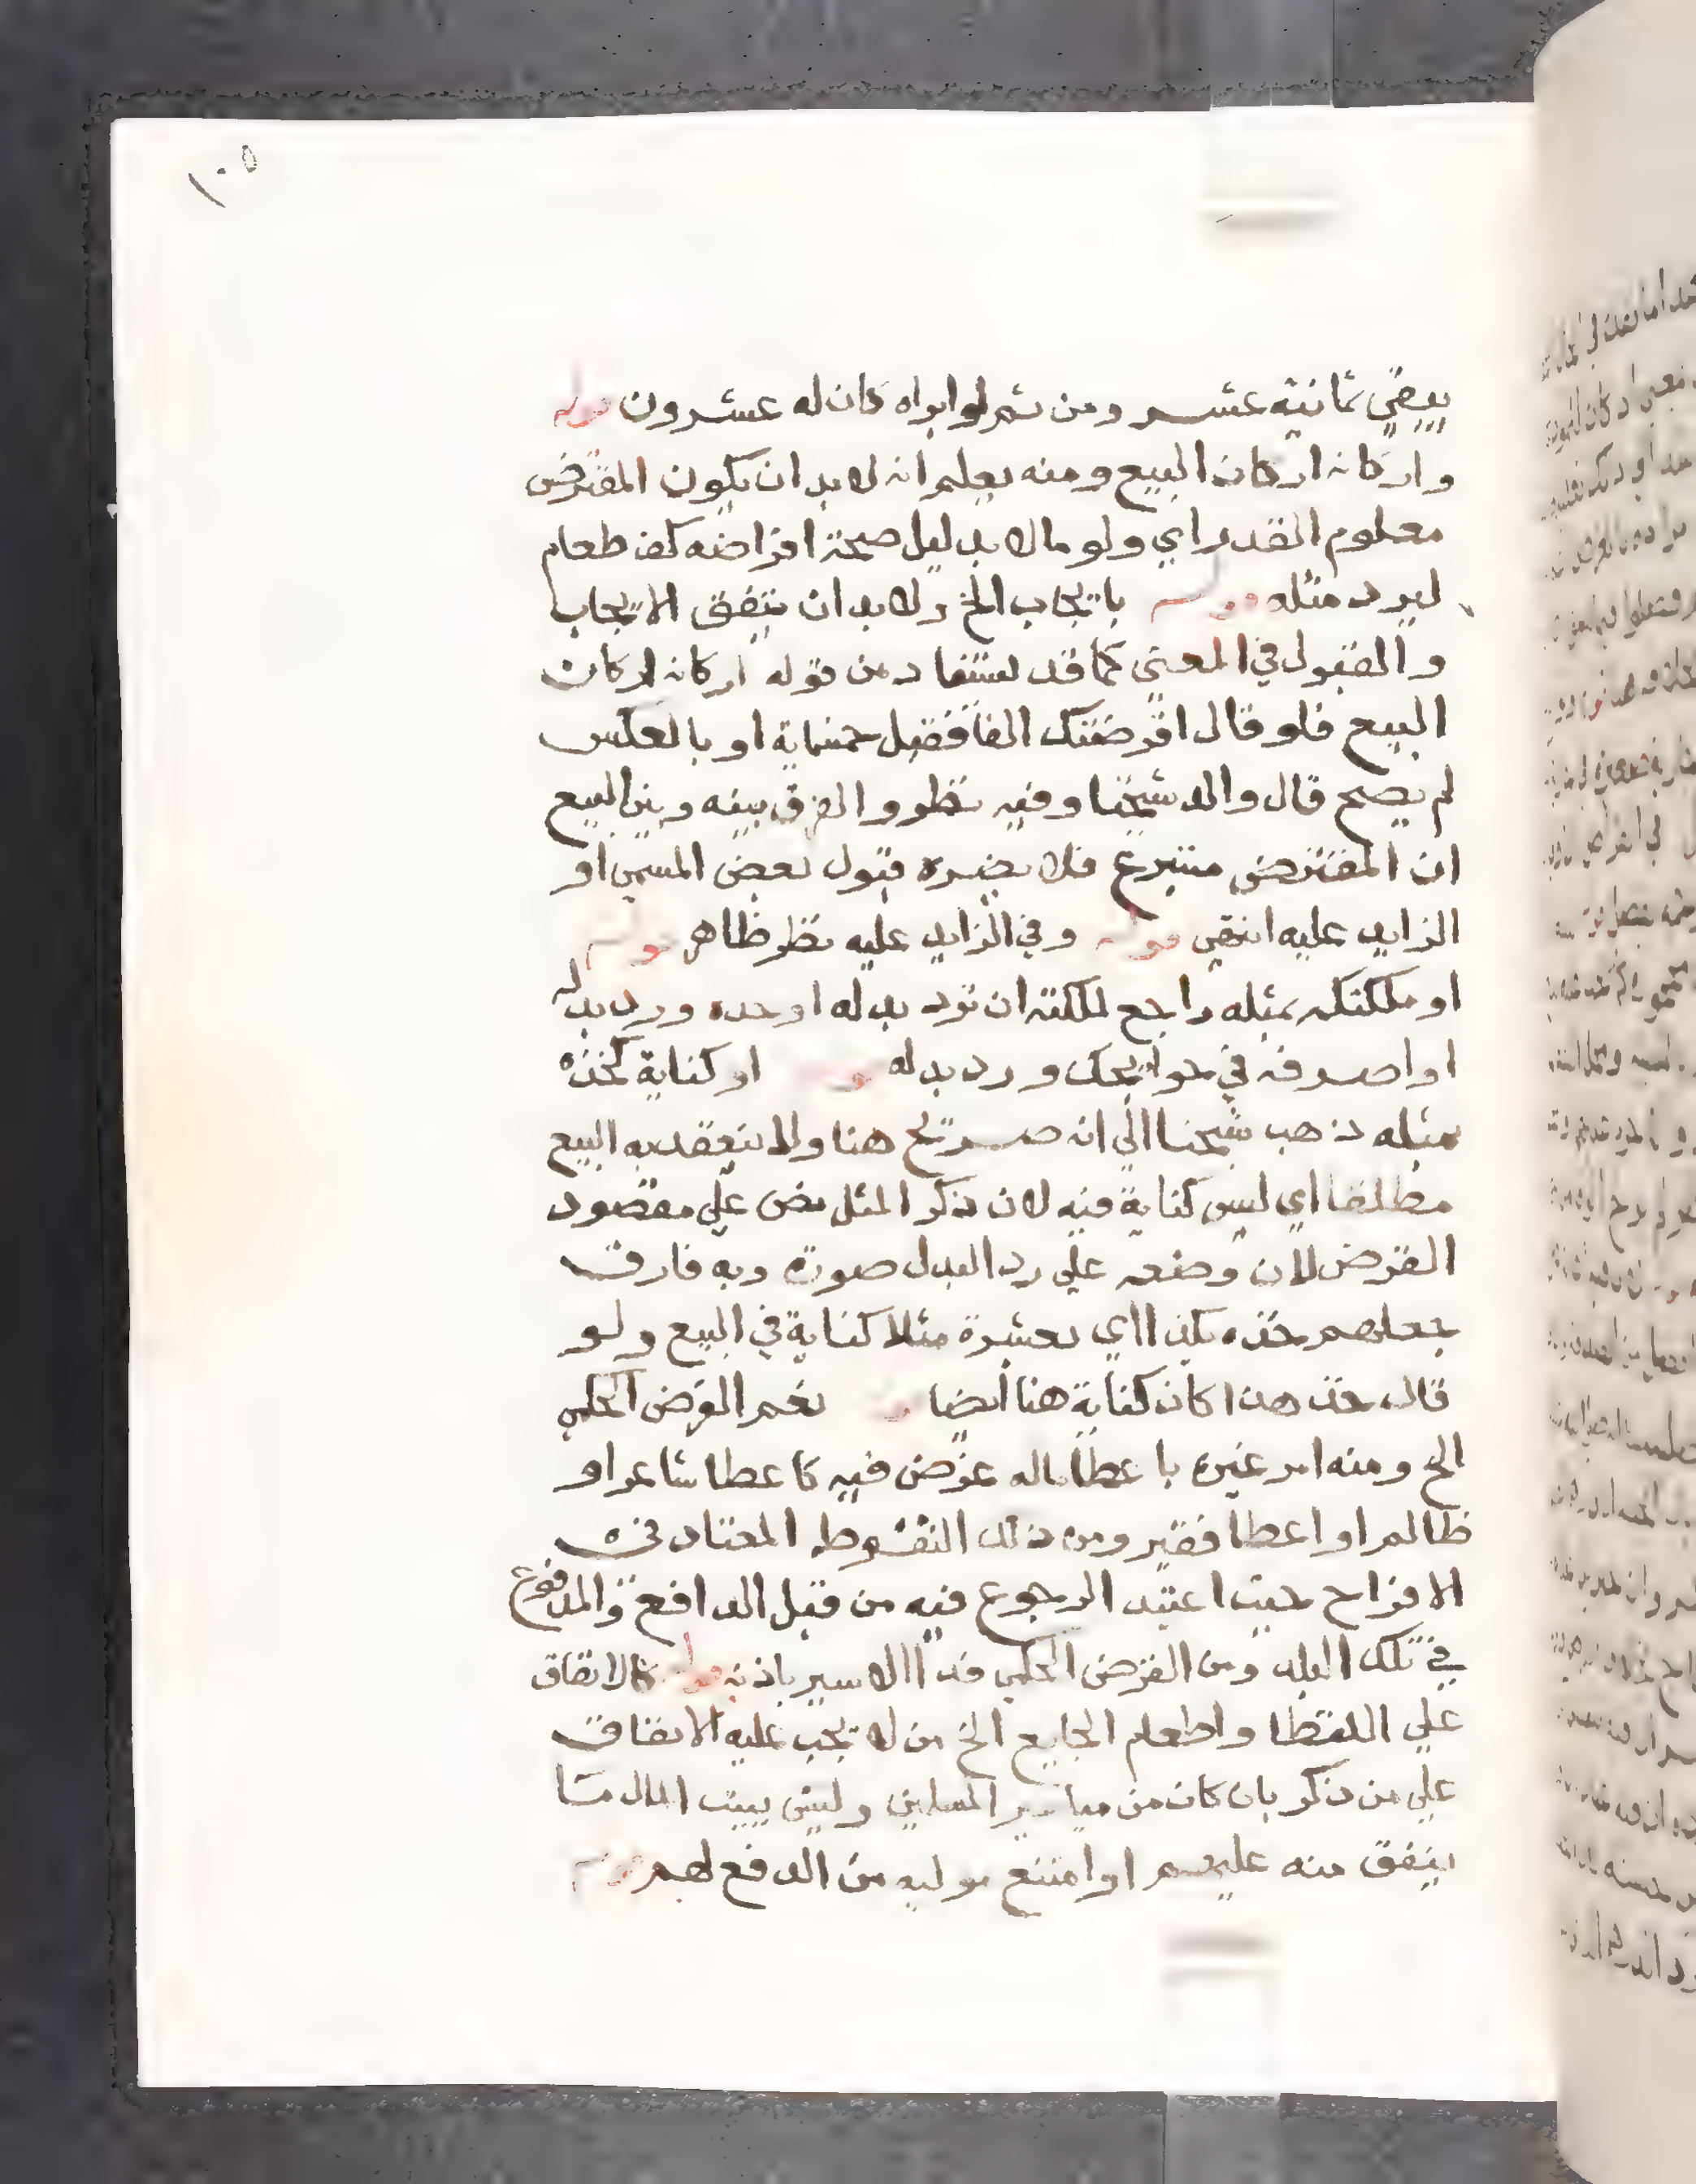 ١٠٥
يبقي ثمانية عشر ومن ثم لو ابراه كان له عشرون قوله
واركانه اركان البيع ومنه يعلم انه لا بد ان يكون المقترض
معلوم القدر اي ولو مالا بدليل صحة اقراضه كف طعام
ليرد مثله قوله بايجاب الخ ولا بد ان يتفق الايجاب
والقبول في المعني كما قد يستفاد من قوله اركانه اركان
البيع فلو قال اقرضتك الفا فقبل خمسماية او بالعكس
لم يصح قال والد شيخنا وفيه نظر والفرق بينه وبين البيع
ان المقترض متبرع فلا يضره قبول بعض المسمي او
الزايد عليه انتهي قوله وفي الزايد عليه نظر ظاهر قوله
او ملكتكه بمثله راجع لملكته ان ترد بدله او خده ورد بدله
او اصرفه في حوايجك ورد بدله قوله او كناية كخذه
بمثله ذهب شيخنا الي انه صريح هنا ولا ينعقد به البيع
مطلقا اي ليس كناية فيه لان ذكر المثل نص علي مقصود
القرض لان وضعه علي رد البدل صورة وبه فارق
جعلهم خذه بكذا اي بعشرة مثلا كناية في البيع ولو
قال خذ هذا كان كناية هنا ايضا قوله نعم القرض الحكمي
الخ ومنه امر غيره باعطا ماله غرض فيه كاعطا شاعر او
ظالم او اعطا فقير ومن ذلك النقوط المعتاد في
الافراح حيث اعتيد الرجوع فيه من قبل الدافع والمدفوع
في تلك البلد ومن القرض الحكمي فدا الاسير باذنه قوله كالانفاق
علي اللقطا واطعام الجايع الخ من لا يجب عليه الانفاق
علي من ذكر بان كان من مياسير المسلمين وليس ببيت المال ما
ينفق منه عليهم او امتنع موليه من الدفع لهم قوله